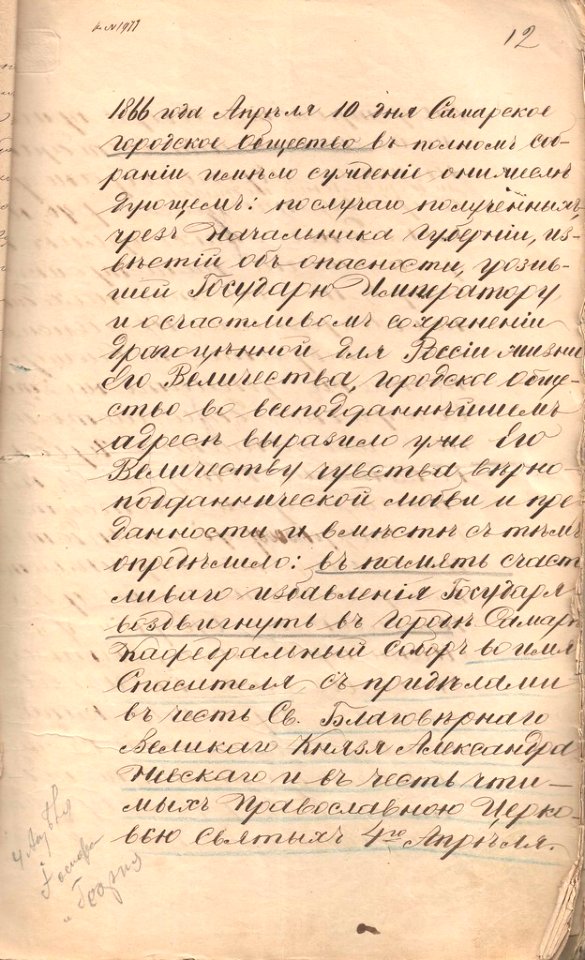 к №1977
12
1866 года Апрѣля 10 дня Самарское
городское Общество въ полномъ со-
браніи имѣло сужденіе о нижеслѣ-
дующемъ: по случаю полученныхъ
чрезъ Начальника Губерніи, из-
вѣстій объ опасности, грозив-
шей Государю Императору
и о счастливомъ сохраненіи
драгоцѣнной для Россіи жизни
Его Величества, городское Обще-
ство во всеподданнѣйшемъ
адресѣ выразило уже Его
Величеству чувства вѣрно-
подданнической любви и пре
данности и вмѣстѣ съ тѣмъ
опредѣлило: въ память счаст
ливаго избавленія Государя
воздвигнуть въ городѣ Самарѣ
Кафедральный Соборъ во имя
Спасителя, съ придѣлами
въ честь Св. Благовѣрнаго
Великаго Князя Александра
Невскаго и въ честь чти-
мыхъ Православною Церко-
вью Святыхъ 4го Апрѣля.